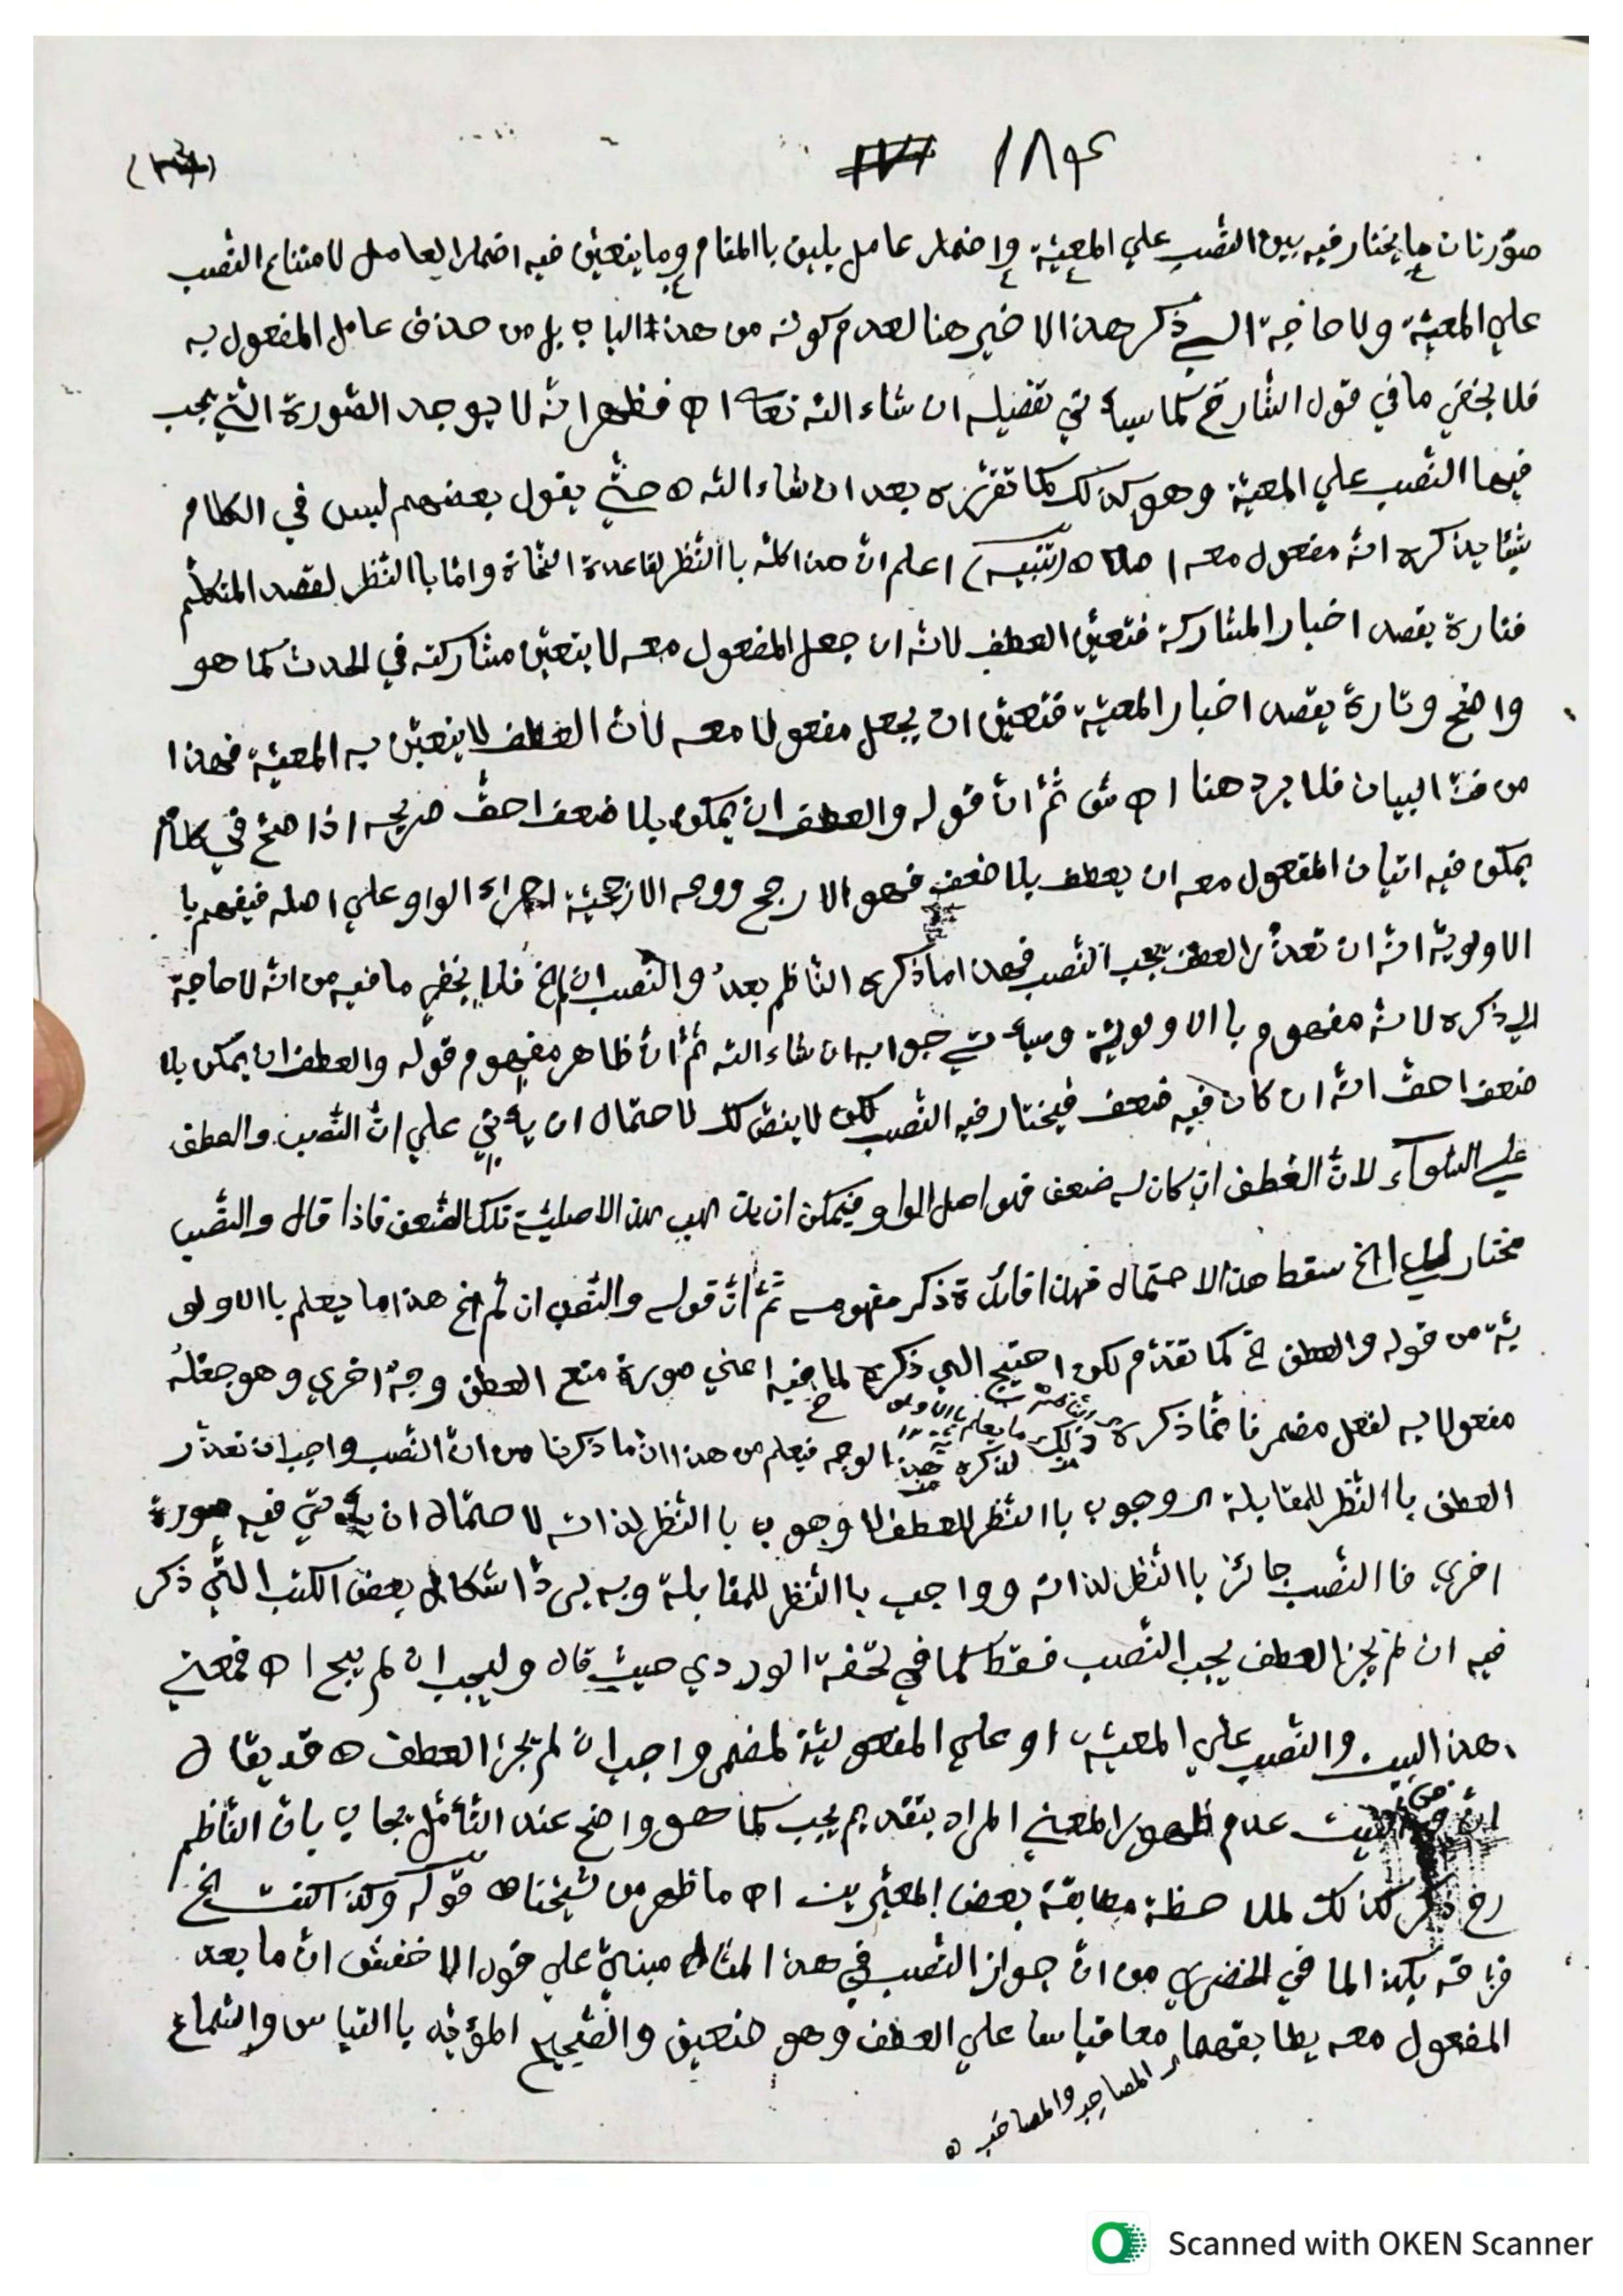 ١٨٤
صوّرتان ما يختار فيه بين النّصب علي المعيّة واضمار عامل يليق باالمقام وما يتعيّن فيه اضمار العامل لامتناع النّصب
علي المعيّة ولا حاجة الي ذكر هذا الاخير هنا لعدم كونه من هذا الباب بل من حذف عامل المفعول به
فلا يخفي ما في قول الشّارح كما سيأتي تفصيله ان شاء الله تعا اه فظهر انّه لا يوجد الصّورة الّتي يجب
فيها النّصب علي المعيّة وهو كذلك كما تقرّره بعد ان شاء الله ه حتّي يقول بعضهم ليس في الكلام
شيئا يذكره انّه مفعول معه اصلا ه (تنبيه) اعلم انّ هذا كلّه باالنّظر لقاعدة النّحاة وامّا باالنّظر لقصد المتكلّم
فتارة يقصد اخبار المشاركة فتعيّن العطف لانّه ان جعل المفعول معه لا يتعيّن مشاركته في الحدث كما هو
واضح وتارة يقصد اخبار المعيّة فتعيّن ان يجعل مفعولا معه لانّ العطف لا يتعيّن به المعيّة فهذا
من فنّ البيان فلا يرد هنا اه ش ثمّ انّ قوله والعطف ان يمكن بلا ضعف احقّ صريحه اذا صحّ في كلام
يمكن فيه اتيان المفعول معه ان يعطف بلا ضعف فهو الارجح ووجه الارجحيّة اجراء الواو علي اصله فيفهم با
الاولويّة انّه ان تعذّر العطف يجب النّصب فهذا ما ذكره النّاظم بعدُ والنّصب ان لم الخ فلا يخفي ما فيه من انّه لا حاجة
الي ذكره لانّه مفهوم باالاولويّة وسيأتي جوابه ان شاء الله ثمّ انّ ظاهر مفهوم قوله والعطف ان يمكن بلا
ضعف احقّ انّه ان كان فيه ضعف فيختار فيه النّصب لكن لا ينصّ لك لاحتمال ان يأتي علي انّ النّصب والعطف
علي السّوآء لانّ العطف ان كان له ضعف فهو اصل الواو فيمكن ان هذه الاصليّة تلك الضّعف فاذا قال والنّصب
مختار لدي الخ سقط هذا الاحتمال فهذا فائدة ذكر مفهومه ثمّ انّ قوله والنّصب ان لم الخ هذا ما يعلم باالاولو
يّة من قوله والعطف الخ كما تقدّم لكن احتيج الي ذكره لما فيه اعني صورة منع العطف وجهٌ اخري وهو جعلهُ
مفعولا به لفعل مضمر فانّما ذكره لذكره هذا الوجه فيعلم من هذا انّ ما ذكرنا من انّ النّصب واجب ان تعذّر
العطف باالنّظر للمقابلة الوجوب باالنّظر للعطف لا وجوب باالنّظر لذاته لاحتمال ان يأتي فيه صورة
اخري فاالنّصب جائز باالنّظر لذاته وواجب باالنّظر للمقابلة وبه يردّ اشكال بعض الكتب الّتي ذكر
فيه ان لم يجز العطف يجب النّصب فقط كما في تحفة الوردي حيث قال وليجب ان لم يبح اه فمعني
هذا البيت والنّصب علي المعيّة او علي المفعوليّة لمضمر واجب ان لم يجز العطف ه قد يقال
انّ في البيت عدم ظهور المعني المراد بتقديم يجب كما هو واضح عند التّأمّل يجاب بانّ النّاظم
رح ذكر كذلك لملاحظة مطابقة بعض المعبّرين اه ما ظهر من شيخنا ه قوله وكذا كنت الخ
فرّقه بكذا لما في الخضري من انّ جواز النّصب في هذا المثال مبنيّ علي قول الاخفش انّ ما بعد
المفعول معه يطابقهما معا قياسا علي العطف وهو ضعيف والصّحيح المؤيّد باالقياس والسّماع
المصاحِب والمصاحَب ه
Scanned with OKEN Scanner